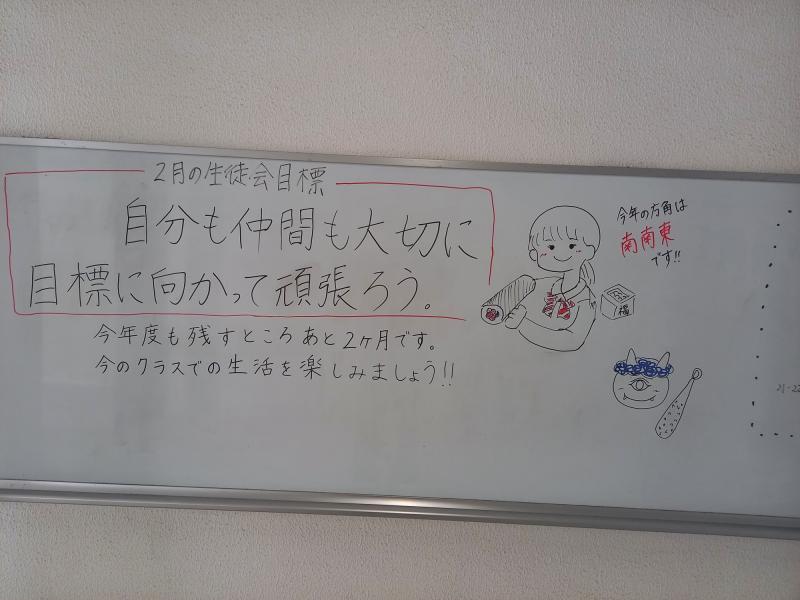 2月の生徒会目標
自分も仲間も大切に
目標に向かって頑張ろう。
今年度も残すところあと2ヶ月です。
今のクラスでの生活を楽しみましょう!!
今年の方角は
南南東
です!!
福
21-22